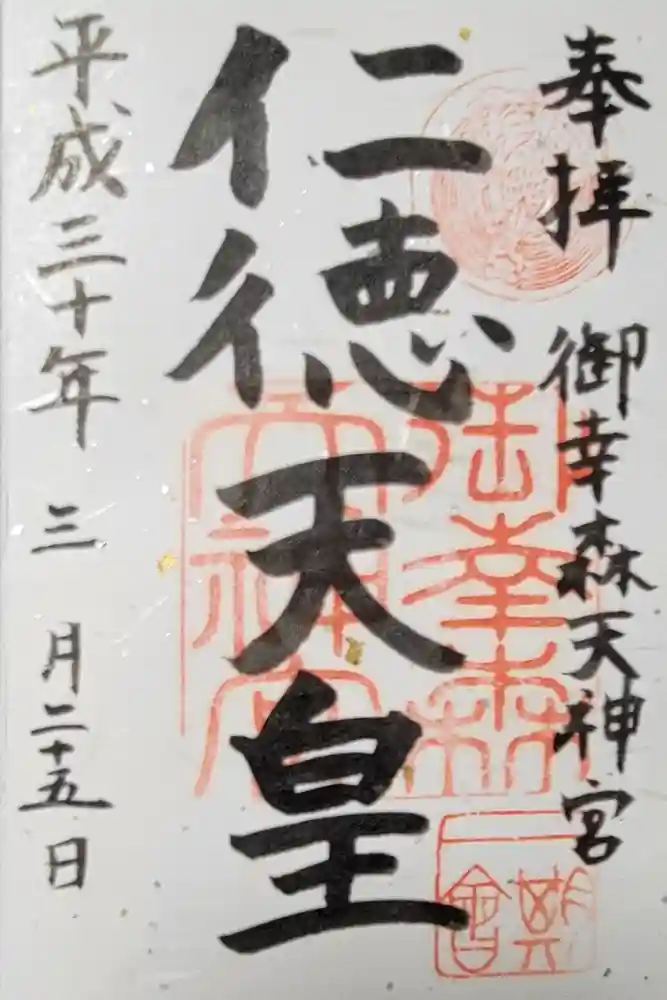 奉拝 御幸森天神宮
仁徳天皇
平成三十年 三 月二十五日
御幸森
天神宮
一期
一會